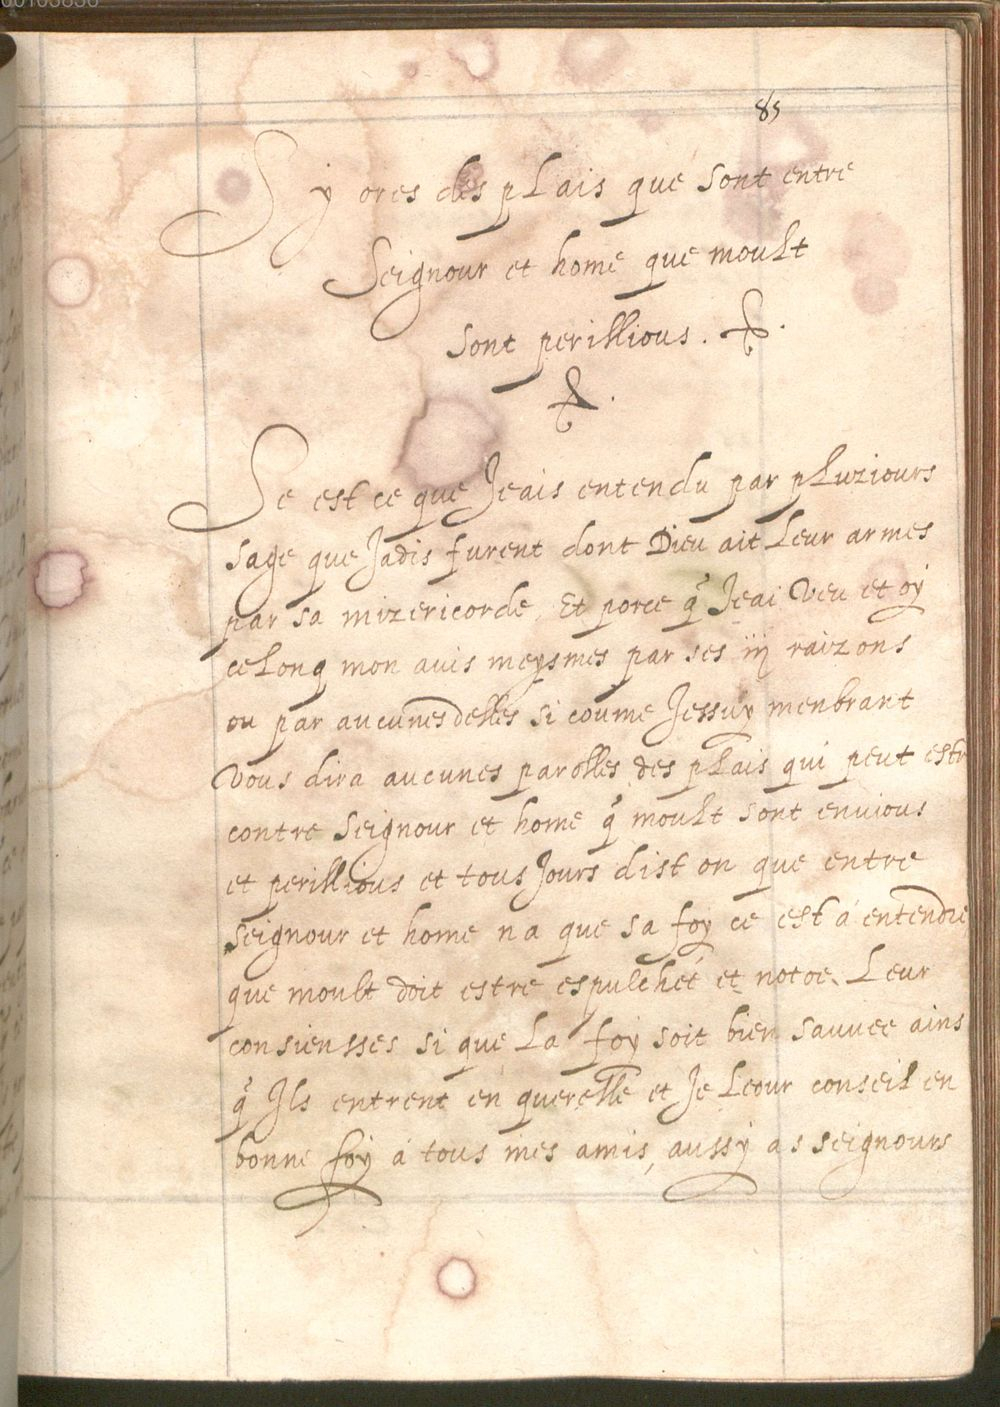 85
Sy ores des plais que sont entre
Seignour et home que moult
sont perillious.
Se est ce que Jeais entendu par pluziours
sage que Jadis furent dont Dieu ait Leur armes
par sa mizericorde, Et porce q̃ Jeai Veu et oÿ
celong mon auis meysmes par ses iij raizons
ou par aucunes delles si coume Jessuy menbrant
Vous dira aucunes parolles des plais qui peut estr
contre Seignour et home q̃ moult sont enuious
et perillious et tous Jours dist on que entre
Seignour et home na que sa foy ce est a entendre
que moult doit estre espulchét et notoe. Leur
consiensses si que La foy soit bien sauuee ains
q̃ Ils entrent en querelle et Je Leour conseil en
bonne foy a tous mes amis, aussy as seignours